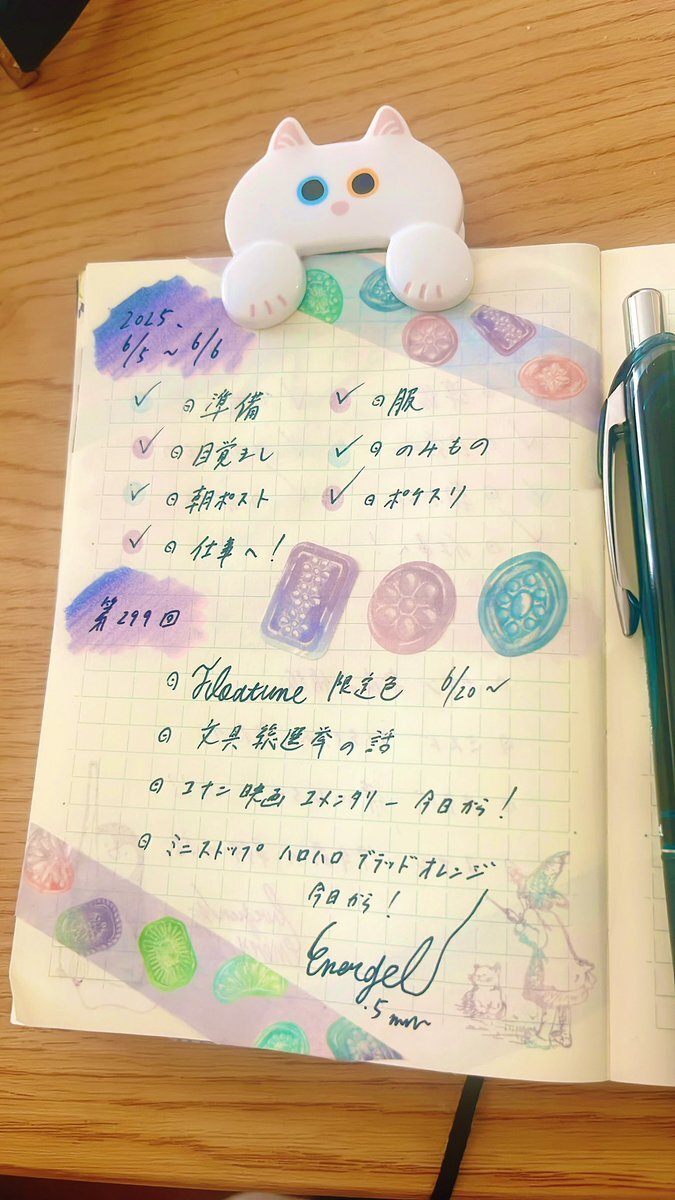 2025.
6/5 ~ 6/6
✓ 準備
✓ 服
✓ 目覚まし
✓ のみもの
✓ 朝ポスト
✓ ポケスリ
✓ 仕事へ!
第299回
Floatune 限定色 6/20~
文具総選挙の話
コナン映画 コメンタリー 今日から!
ミニストップ ハロハロ ブラッドオレンジ
今日から!
Energel
.5mm